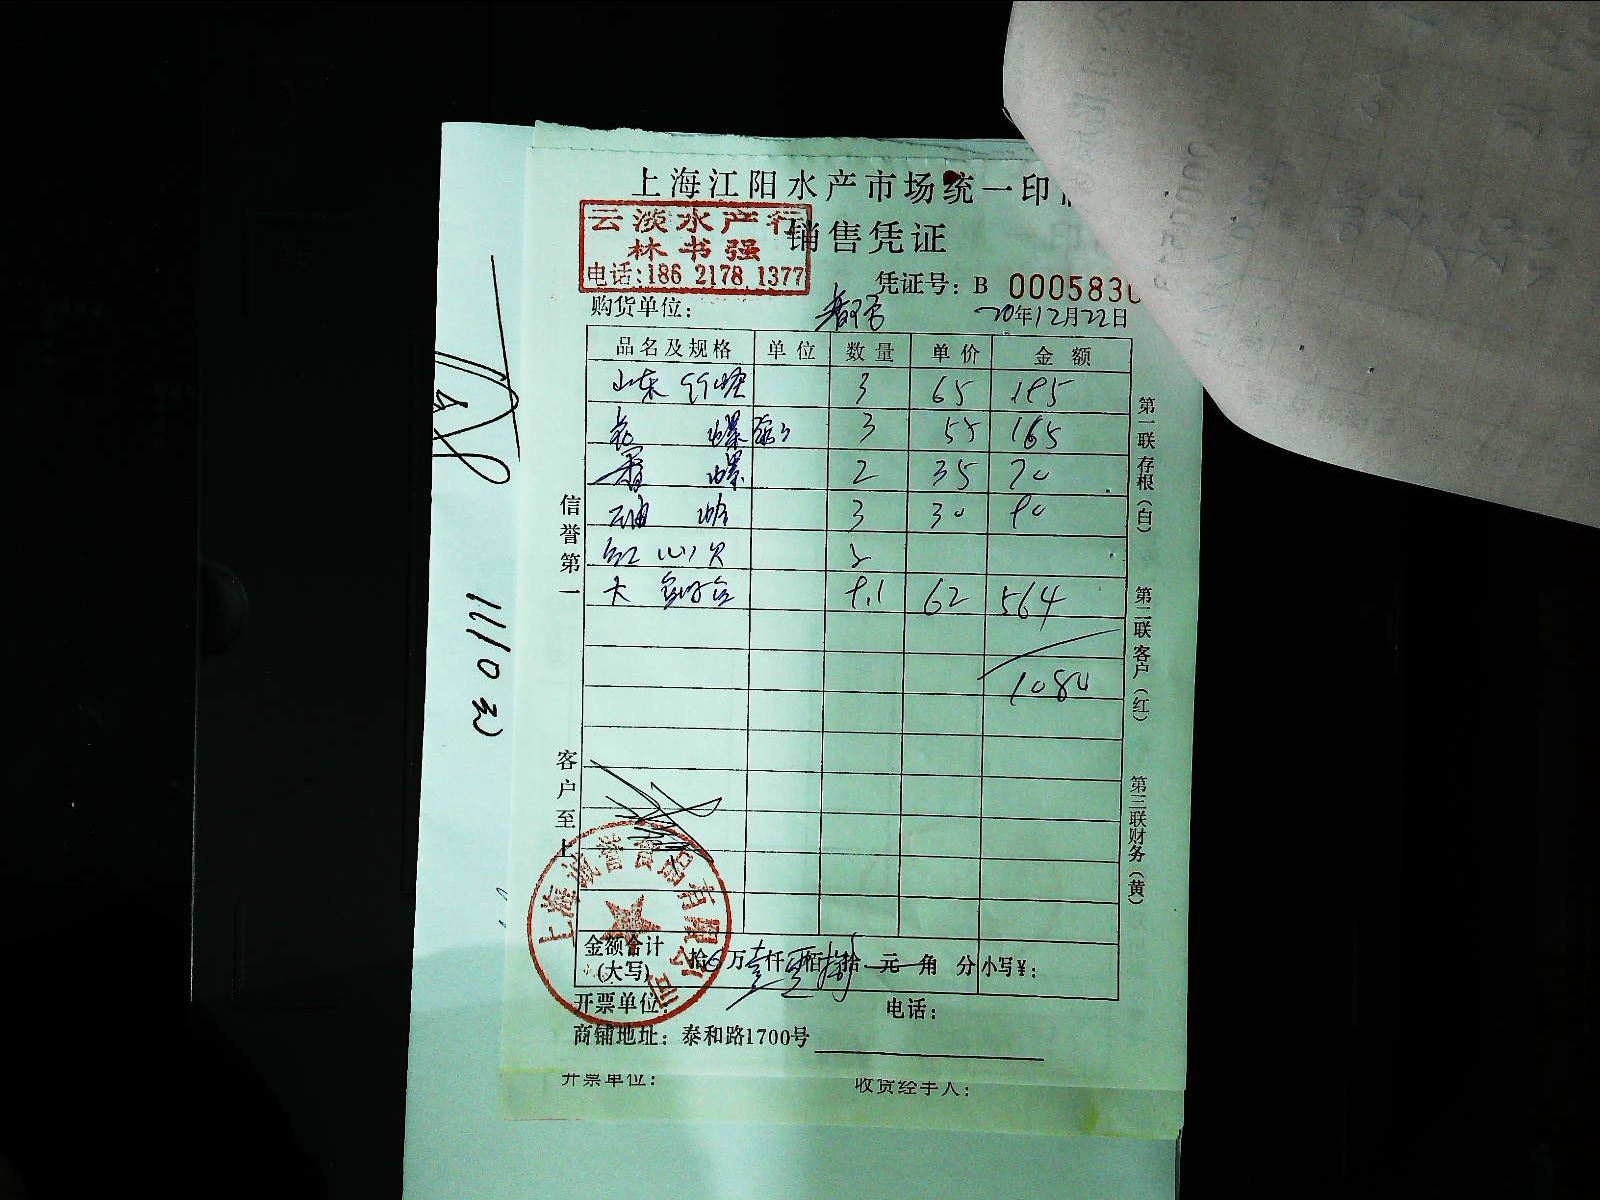 上海江阳水产市场统一印
云淡水产行
林书强
电话:186 2178 1377
销售凭证
凭证号: B 000583
购货单位:
20年12月22日
品名及规格 单位 数量 单价 金额
山东 3 65 195
花 螺 3 55 165
香 螺 2 35 70
油 蛤 3 30 90
红
大 鲍 9.1 62 564
1084
1110元
信誉第一
客户至上
第一联 存根(白)
第二联 客户(红)
第三联 财务(黄)
上海诚誉食品有限公司
金额合计 拾 万壹仟 佰 拾 元 角 分 小写¥:
(大写)
开票单位: 电话:
商铺地址: 泰和路1700号
开票单位: 收货经手人: